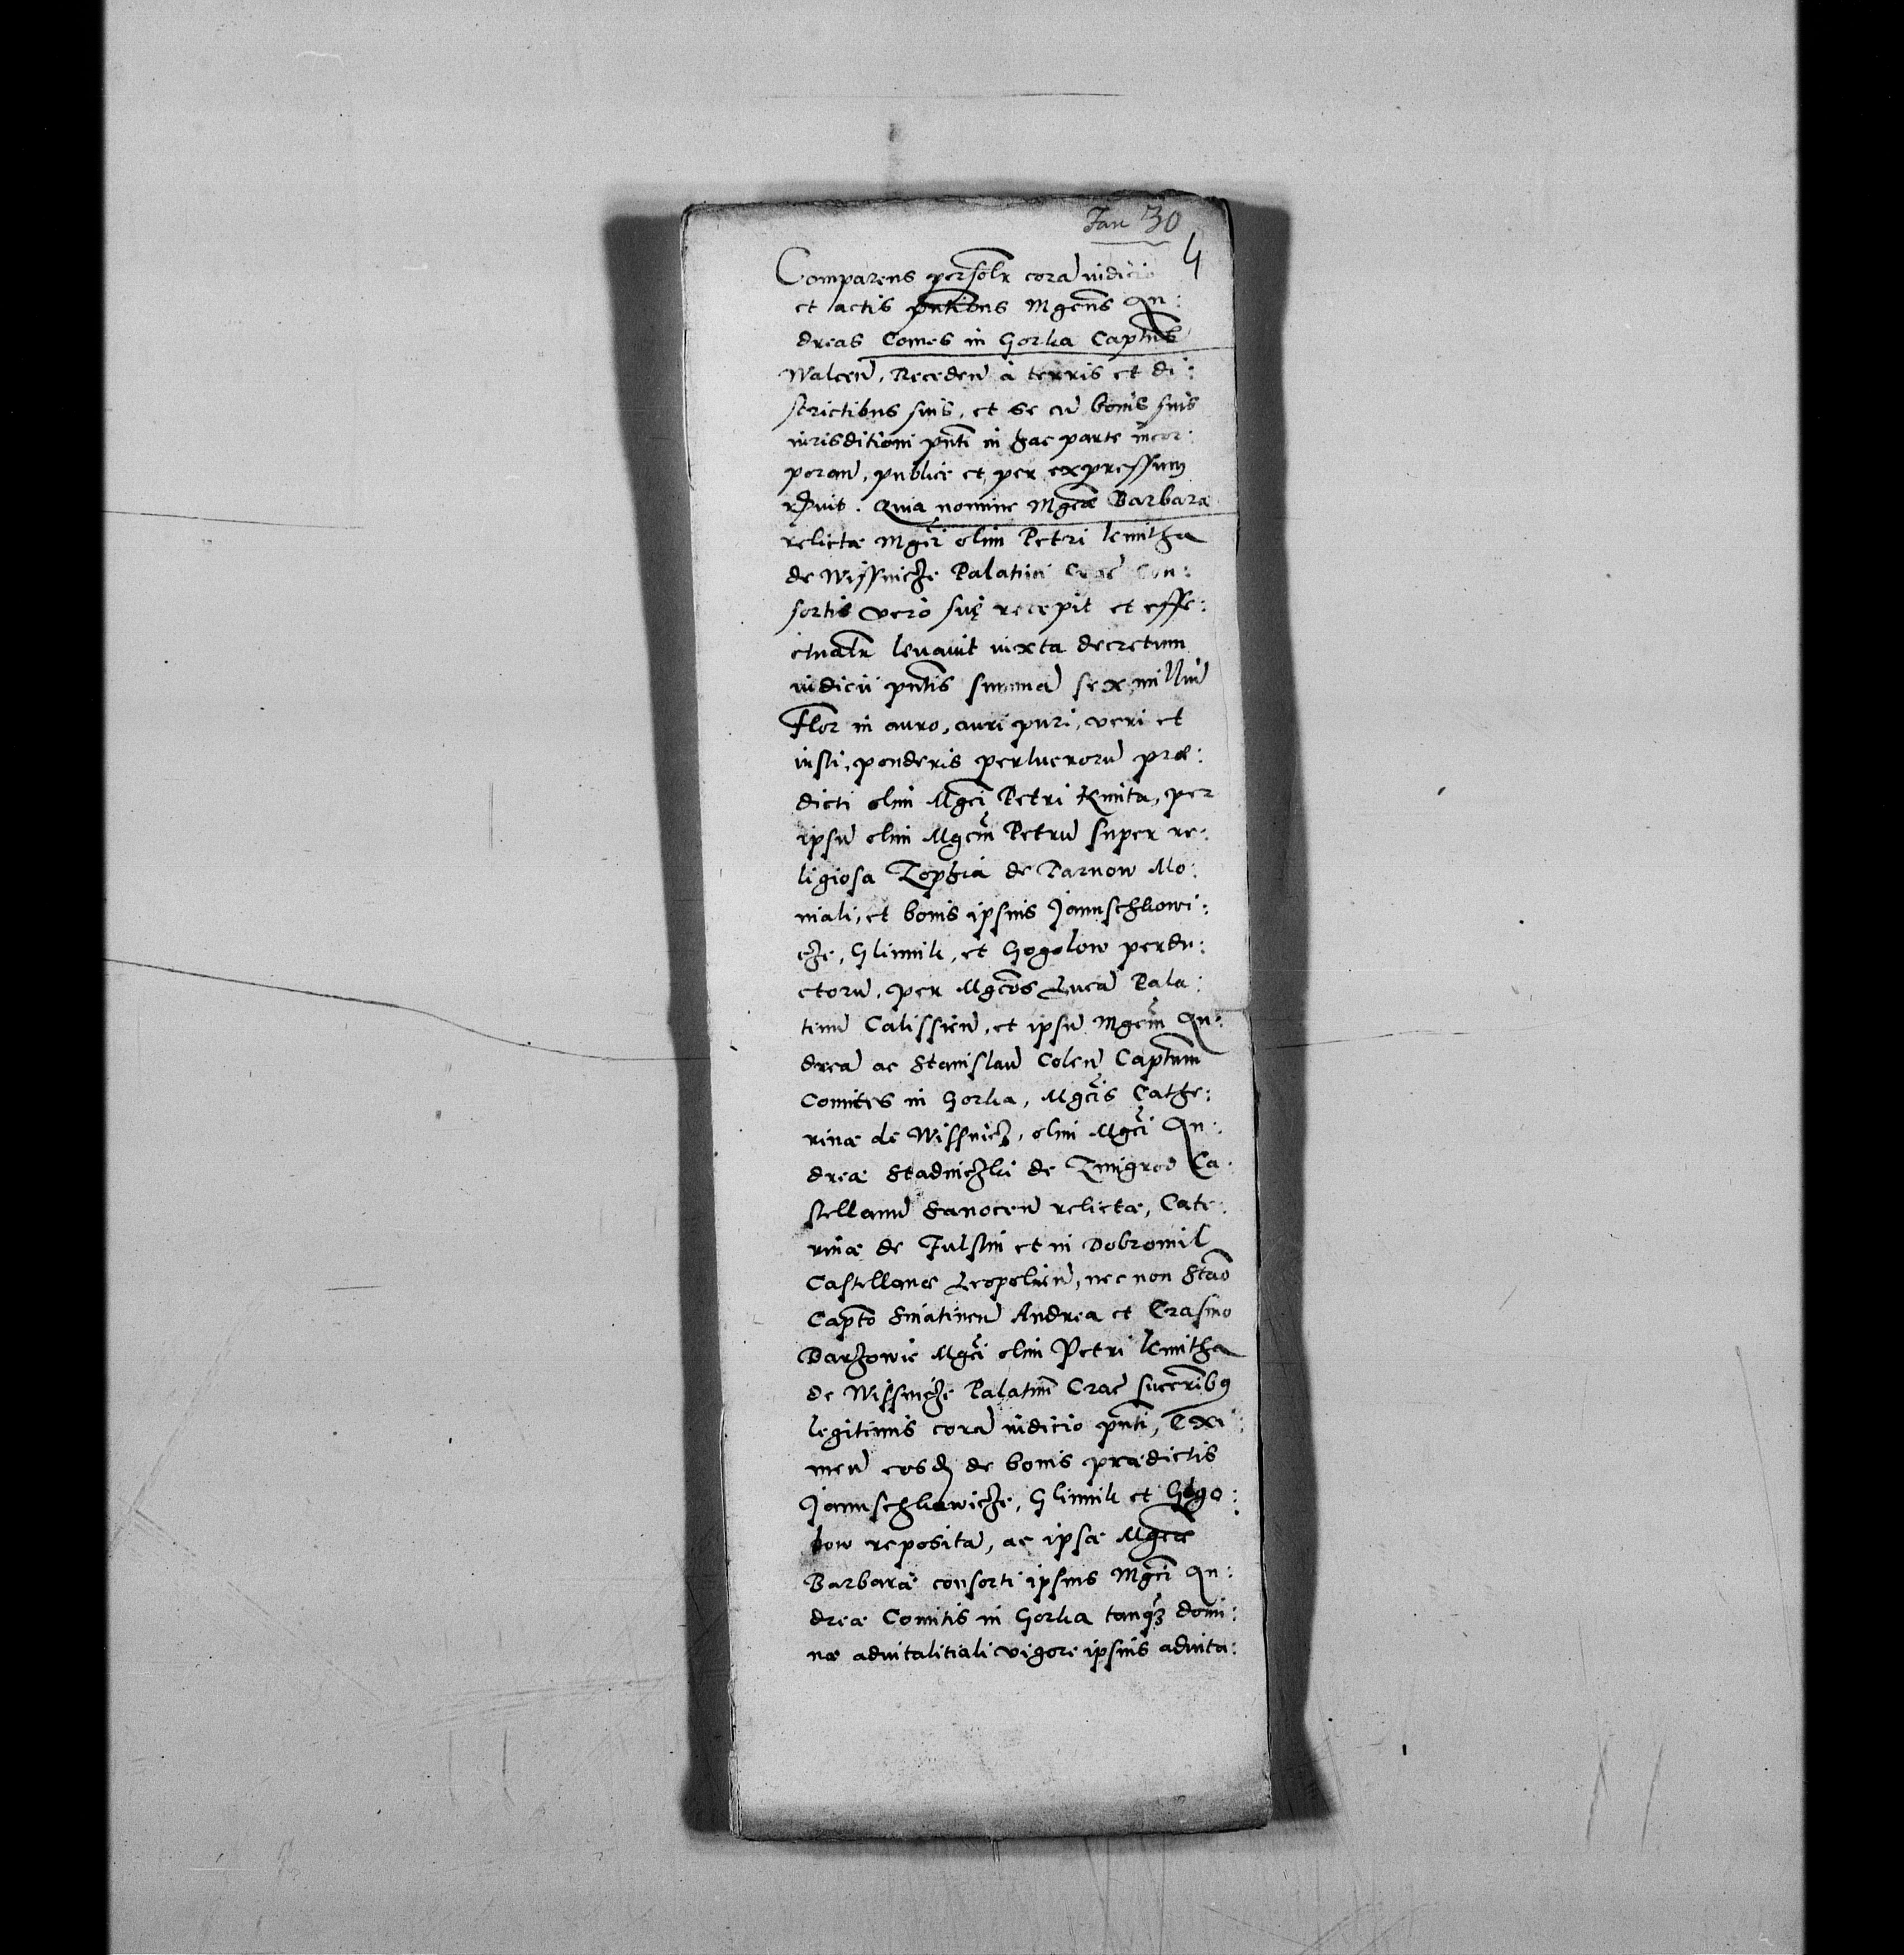 Jan 30
4
Comparens personlr cora iudicio
et actis pntibus Mgcus An:
dreas Comes in Gorka Captus
Walcen, Receden à terris et di:
strictibus suis, et se cu bonis suis
iurisditioni pnti in hac parte incor:
poran, publicè et per expressum
rssuit. Quia nomine Mgcæ Barbaræ
relictæ Mgci olim Petri kmitha
de Wissnicze Palatini Crac Con:
sortis verò suę recepit et effe:
ctualr leuauit iuxta decretum
iudicii pntis summa sex milliu
Flor in auro, auri puri, veri et
iusti, ponderis perlucroru præ:
dicti olim Mgci Petri Kmita, per
ipsu olim Mgcm Petru super re:
ligiosa Zophia de Tarnow Mo:
niali, et bonis ipsius Januschkowi:
cze, Glinnik, et Gogolow perdu:
ctoru, per Mgcos Luca Pala:
tinu Calissien, et ipsu Mgcm An:
drea ac Stanislau Colen Captum
Comites in Gorka, Mgcis Cathe:
rinæ de Wissnicz, olim Mgci An:
dreæ Stadniczki de Zmigrod Ca:
stellanu Sanocen relictæ, Cate:
rinæ de Fulstin et in Dobromil
Castellanæ Leopolien, nec non Stao
Capto Sniatinen Andrea et Erasmo
Barzowie Mgci olim Petri kmitha
de Wissnicze Palatini Crac succribus
legitimis cora iudicio pnti, Exi:
men eosd de bonis prædictis
Januschkowicze, Glinnik et Gogo:
low reposita, ac ipsæ Mgcæ
Barbaræ consorti ipsius Mgci An:
dreæ Comitis in Gorka tanqz domi:
næ aduitalitiali vigore ipsius aduita: